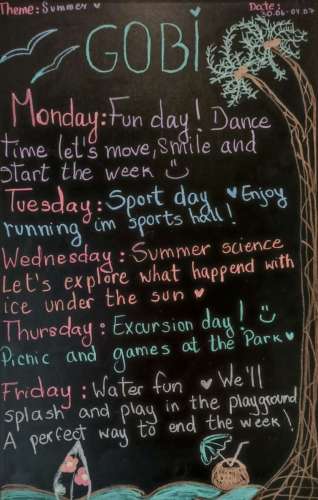 Theme: Summer ♥
Date:
30.06-04.07
GOBI
Monday: Fun day! Dance
time let's move, Smile and
start the week
Tuesday: Sport day ♥ Enjoy
running im sports hall!
Wednesday: Summer science
Let's explore what happend with
ice under the sun ♥
Thursday: Excursion day!
Picnic and games at the Park ♥
Friday: Water fun ♥ We'll
splash and play in the playground
A perfect way to end the week!